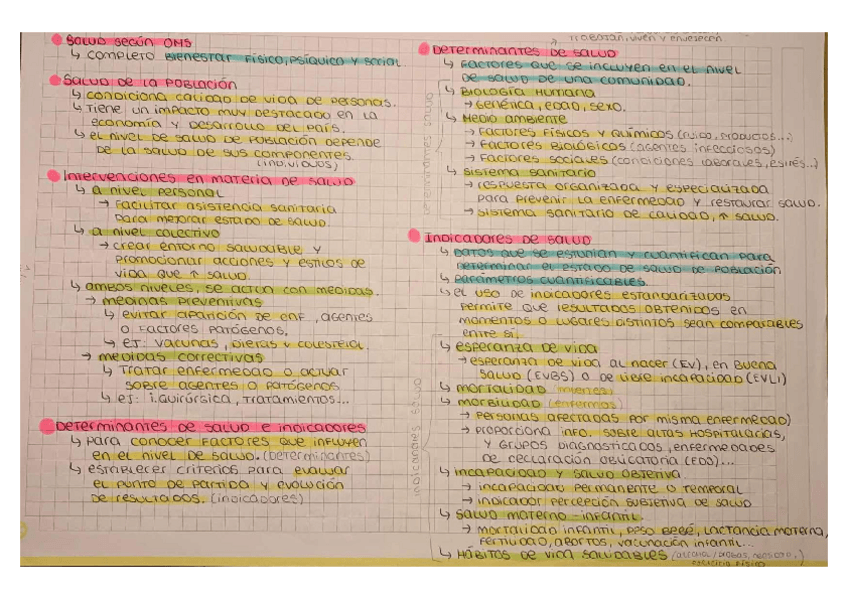 SALUD SEGÚN OMS
↳ COMPLETO BIENESTAR FÍSICO, PSÍQUICO Y SOCIAL
SALUD DE LA POBLACIÓN
↳ CONDICIONA CALIDAD DE VIDA DE PERSONAS.
↳ TIENE UN IMPACTO MUY DESTACADO EN LA
ECONOMÍA Y DESARROLLO DEL PAÍS.
↳ EL NIVEL DE SALUD DE POBLACIÓN DEPENDE
DE LA SALUD DE SUS COMPONENTES.
(INDIVIDUOS)
INTERVENCIONES EN MATERIA DE SALUD
↳ A NIVEL PERSONAL
→ FACILITAR ASISTENCIA SANITARIA
PARA MEJORAR ESTADO DE SALUD.
↳ A NIVEL COLECTIVO
→ CREAR ENTORNO SALUDABLE Y
PROMOCIONAR ACCIONES Y ESTILOS DE
VIDA QUE ↑ SALUD.
↳ AMBOS NIVELES, SE ACTÚA CON MEDIDAS.
→ MEDIDAS PREVENTIVAS
↳ EVITAR APARICIÓN DE ENF, AGENTES
O FACTORES PATÓGENOS.
↳ EJ: VACUNAS, DIETAS ↓ COLESTEROL.
→ MEDIDAS CORRECTIVAS
↳ TRATAR ENFERMEDAD O ACTUAR
SOBRE AGENTES O PATÓGENOS
↳ EJ: I. QUIRÚRGICA, TRATAMIENTOS...
DETERMINANTES DE SALUD E INDICADORES
↳ PARA CONOCER FACTORES QUE INFLUYEN
EN EL NIVEL DE SALUD. (DETERMINANTES)
↳ ESTABLECER CRITERIOS PARA EVALUAR
EL PUNTO DE PARTIDA Y EVOLUCIÓN
DE RESULTADOS. (INDICADORES)
TRABAJAN, VIVEN Y ENVEJECEN
DETERMINANTES DE SALUD
↳ FACTORES QUE SE INCLUYEN EN EL NIVEL
DE SALUD DE UNA COMUNIDAD.
DETERMINANTES SALUD
↳ BIOLOGÍA HUMANA
→ GENÉTICA, EDAD, SEXO.
↳ MEDIO AMBIENTE
→ FACTORES FÍSICOS Y QUÍMICOS (RUIDO, PRODUCTOS...)
→ FACTORES BIOLÓGICOS (AGENTES INFECCIOSOS)
→ FACTORES SOCIALES (CONDICIONES LABORALES, ESTRÉS...)
↳ SISTEMA SANITARIO
→ RESPUESTA ORGANIZADA Y ESPECIALIZADA
PARA PREVENIR LA ENFERMEDAD Y RESTAURAR SALUD.
→ SISTEMA SANITARIO DE CALIDAD, ↑ SALUD.
INDICADORES DE SALUD
↳ DATOS QUE SE ESTUDIAN Y CUANTIFICAN PARA
DETERMINAR EL ESTADO DE SALUD DE POBLACIÓN
↳ PARÁMETROS CUANTIFICABLES.
↳ EL USO DE INDICADORES ESTANDARIZADOS
PERMITE QUE RESULTADOS OBTENIDOS EN
MOMENTOS O LUGARES DISTINTOS SEAN COMPARABLES
ENTRE SÍ.
INDICADORES SALUD
↳ ESPERANZA DE VIDA
→ ESPERANZA DE VIDA AL NACER (EV), EN BUENA
SALUD (EVBS) O DE LIBRE INCAPACIDAD (EVLI)
↳ MORTALIDAD
↳ MORBILIDAD (ENFERMOS)
→ PERSONAS AFECTADAS POR MISMA ENFERMEDAD)
→ PROPORCIONA INFO. SOBRE ALTAS HOSPITALARIAS,
Y GRUPOS DIAGNOSTICADOS, ENFERMEDADES
DE DECLARACIÓN OBLIGATORIA (EDO)...
↳ INCAPACIDAD Y SALUD OBJETIVA.
→ INCAPACIDAD PERMANENTE O TEMPORAL
→ INDICADOR PERCEPCIÓN SUBJETIVA DE SALUD
↳ SALUD MATERNO-INFANTIL.
→ MORTALIDAD INFANTIL, PESO BEBÉ, LACTANCIA MATERNA,
FERTILIDAD, ABORTOS, VACUNACIÓN INFANTIL...
↳ HÁBITOS DE VIDA SALUDABLES (ALCOHOL/DROGAS,
EJERCICIO FÍSICO